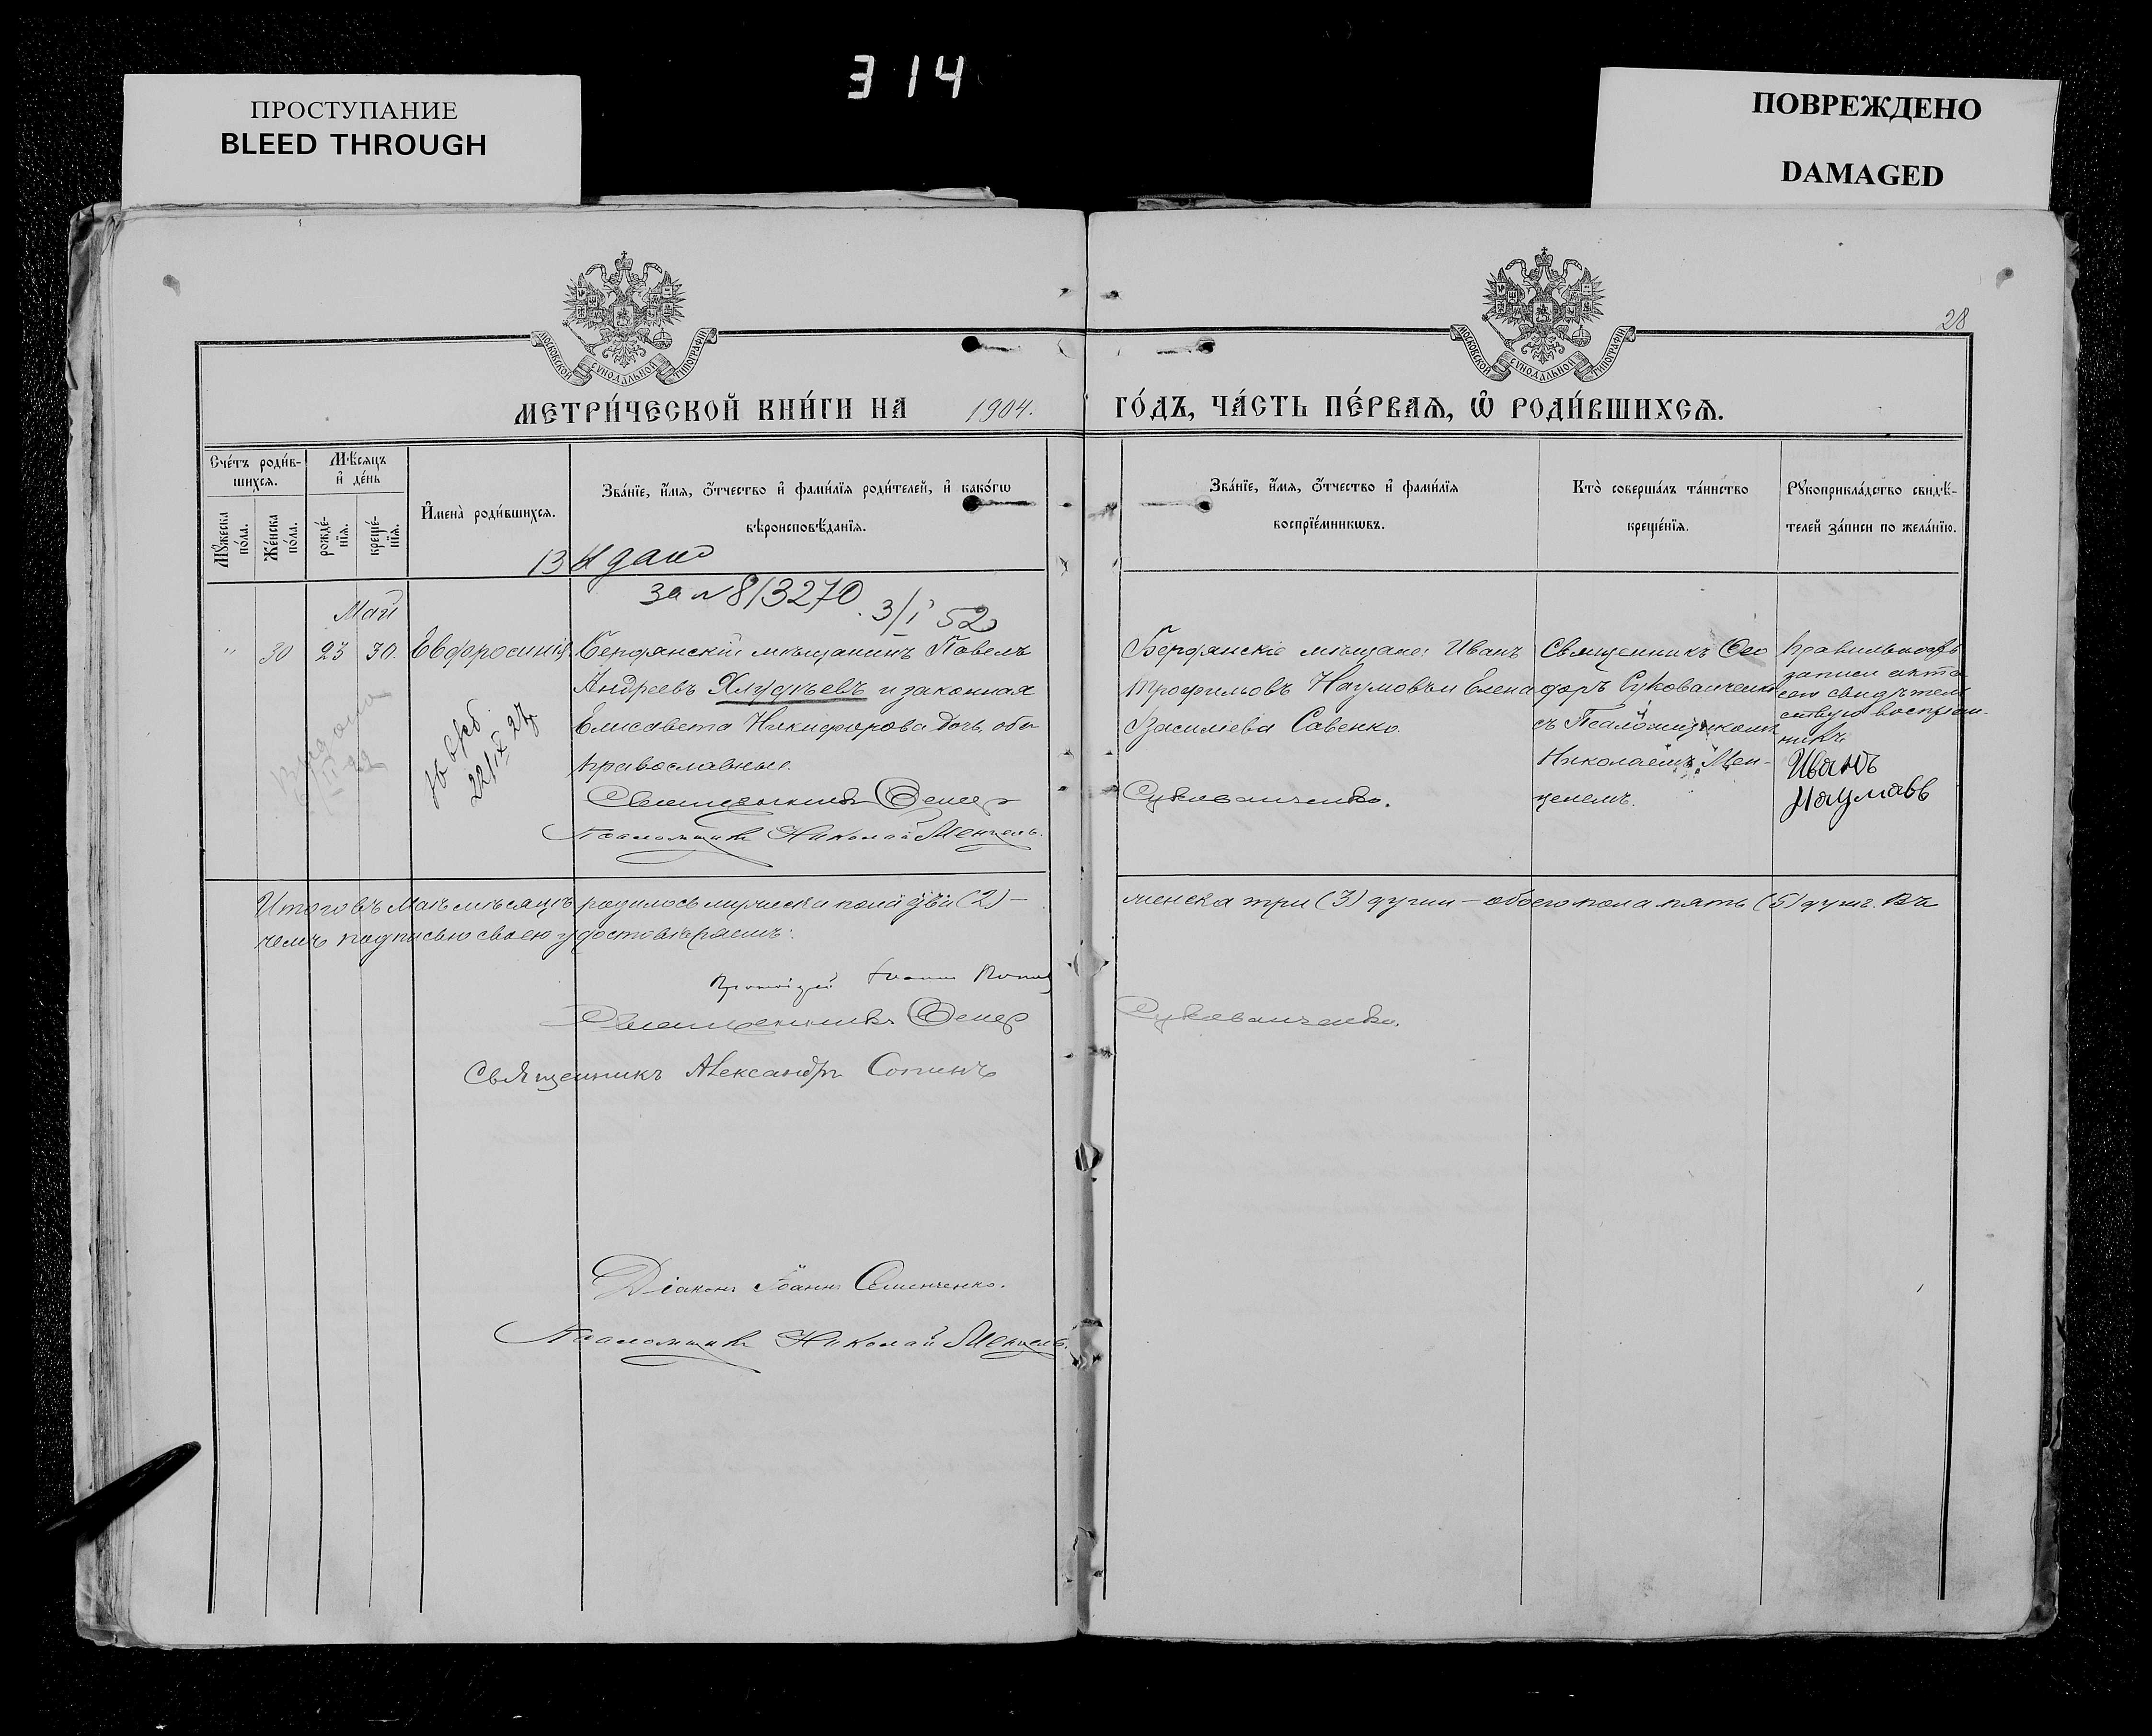 314
ПРОСТУПАНИЕ
BLEED THROUGH
ПОВРЕЖДЕНО
DAMAGED
МОСКОВСКОЙ СѴНОДАЛЬНОЙ ТИПОГРАФІИ
МОСКОВСКОЙ СѴНОДАЛЬНОЙ ТИПОГРАФІИ
28
МЕТРИ́ЧЕСКОЙ КНИ́ГИ НА 1904.
ГО́ДЪ, ЧА́СТЬ ПЕ́РВАѦ, Ѡ҆ РОДИ́ВШИХСѦ.
Сче́тъ роди́в-
шихсѧ.
Мꙋ́жеска по́ла.
Же́нска по́ла.
Мѣ́сѧцъ
и҆ де́нь
рожде́-
нїѧ.
креще́-
нїѧ.
И҆мена̀ роди́вшихсѧ.
Зва́нїе, и҆́мѧ, о҆́тчество и҆ фами́лїѧ роди́телей, и҆ како́гѡ
вѣроисповѣ́данїѧ.
Зва́нїе, и҆́мѧ, о҆́тчество и҆ фами́лїѧ
воспрїе́мникѡвъ.
Кто̀ соверша́лъ та́инство
креще́нїѧ.
Рꙋкоприкла́дство свидѣ́-
телей за́писи по жела́нїю.
за № 813270
3/I 52
Май
" 30 23 30. Евфросинія.
Бердянскій мѣщанинъ Павелъ
Андреевъ Хлудѣевъ и законная
Елисавета Никифорова дочь, оба
православные.
Священникъ Ѳеодоръ
Псаломщикъ Николай Менцель.
22/IX 27
Бердянскіе мѣщане: Иванъ
Трофимовъ Наумовъ и Елена
Василіева Савенко.
Сукованченко.
Священникъ Ѳео
доръ Сукованченко
съ Псаломщикомъ
Николаемъ Мен-
целемъ.
Правильность
записи акта
сего свидѣтель
ствую воспріем-
никъ
Иванъ
Наумовъ
Итого въ Маѣ мѣсяцѣ родилось мужеска пола два (2) –
женска три (3) души – обоего пола пять (5) душъ. Въ
чемъ подписью своею удостовѣряемъ:
Протоіерей Іоаннъ
Священникъ Ѳеодоръ
Сукованченко.
Священникъ Александръ
Діаконъ Іоаннъ Семенченко.
Псаломщикъ Николай Менцель.